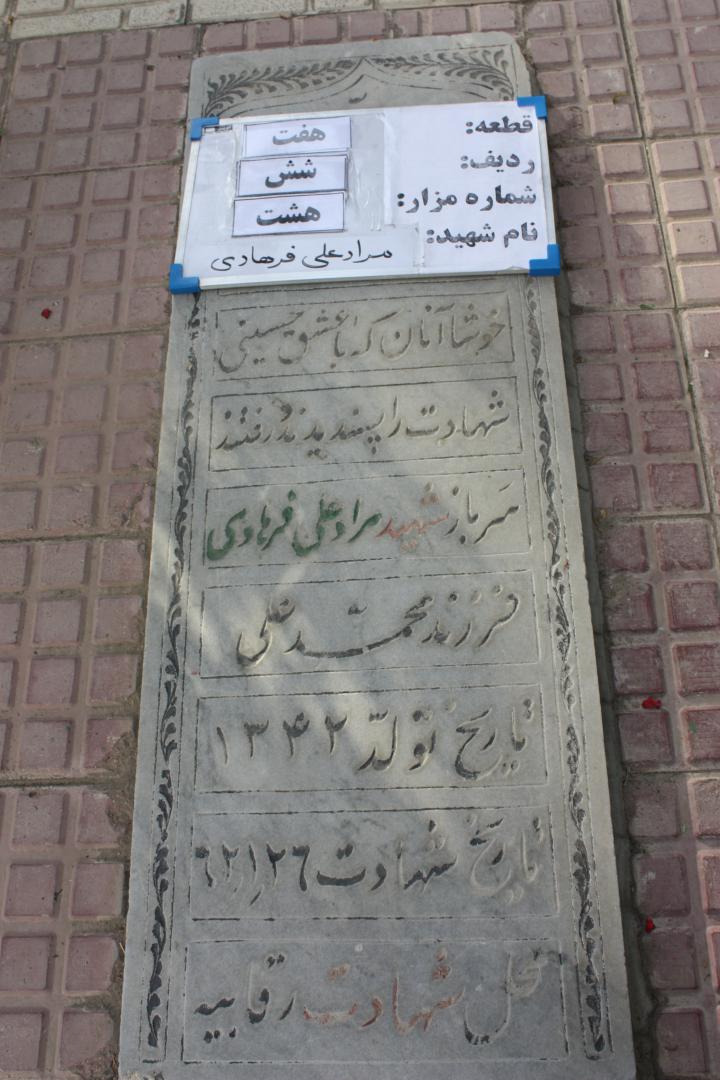 قطعه: هفت
ردیف: شش
شماره مزار: هشت
نام شهید: مرادعلی فرهادی
خوشا آنان که با عشق حسینی
شهادت را پسندیدند و رفتند
سرباز شهید مرادعلی فرهادی
فرزند محمد علی
تاریخ تولد ۱۳۴۲
تاریخ شهادت
محل شهادت رقابیه